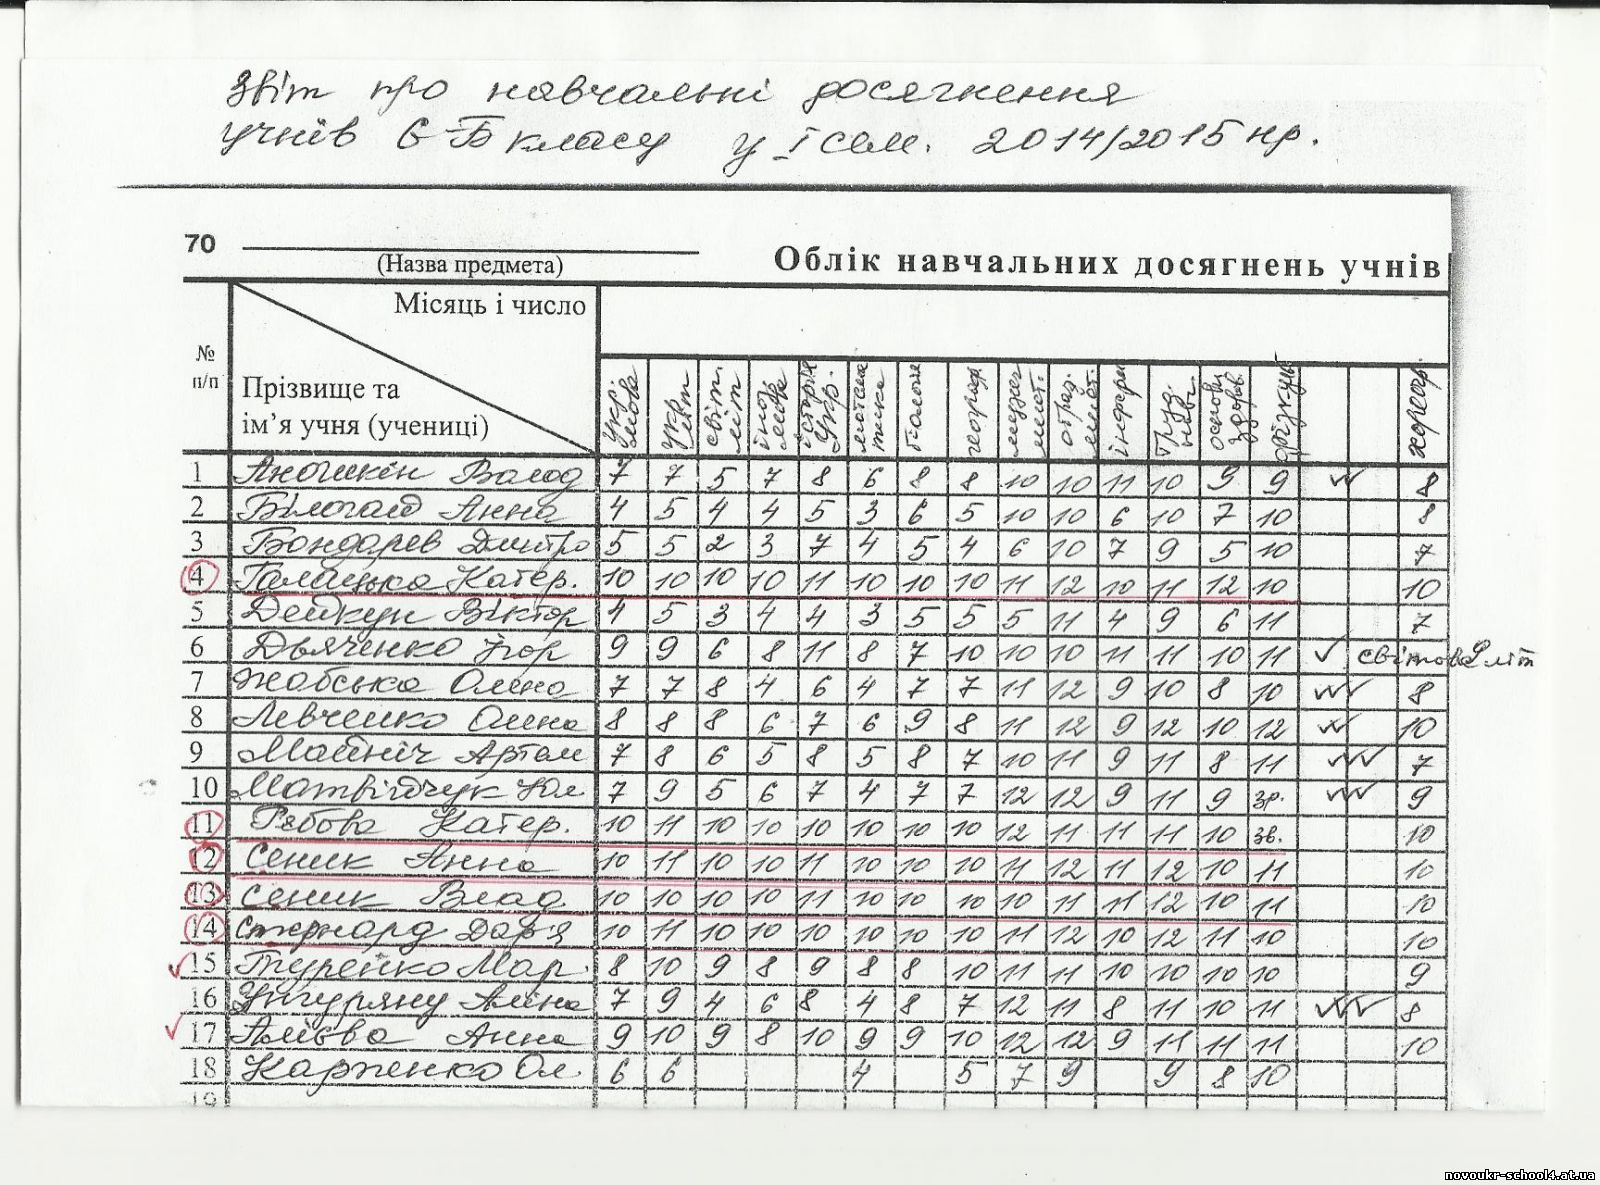 Звіт про навчальні досягнення
учнів 6-Б класу у І сем. 2014/2015 нр.
70
(Назва предмета)
Облік навчальних досягнень учнів
Місяць і число
№ п/п
Прізвище та ім’я учня (учениці)
укр. мова укр літ світ. літ іноз мова історія Укр. матема тика біологія географ музич. мист. образ. мист. інформ труд. навч. основи здоров. фізкул хореогр.
1 Аношкін Волод 7 7 5 7 8 6 8 8 10 10 11 10 9 9 ✓✓ 8
2 Білогаш Анна 4 5 4 4 5 3 6 5 10 10 6 10 7 10 8
3 Бондарев Дмитро 5 5 2 3 7 4 5 4 6 10 7 9 5 10 7
4 Галацька Катер. 10 10 10 10 11 10 10 10 11 12 10 11 12 10 10
5 Дейкун Віктор 4 5 3 4 4 3 5 5 5 11 4 9 6 11 7
6 Дьяченко Ігор 9 9 6 8 11 8 7 10 10 10 11 11 10 11 ✓ світова літ
7 Жабська Олена 7 7 8 4 6 4 7 7 11 12 9 10 8 10 ✓✓✓ 8
8 Левченко Олена 8 8 8 6 7 6 9 8 11 12 9 12 10 12 ✓✓ 10
9 Майніч Артем 7 8 6 5 8 5 8 7 10 11 9 11 8 11 ✓✓✓ 7
10 Матвійчук Юл 7 9 5 6 7 4 7 7 12 12 9 11 9 зр. ✓✓✓ 9
11 Рябова Катер. 10 11 10 10 10 10 10 10 12 11 11 11 10 зв. 10
12 Сеник Анна 10 11 10 10 11 10 10 10 11 12 11 12 10 11 10
13 Сеник Влад 10 10 10 10 11 10 10 10 10 11 11 12 10 11 10
14 Стернард Дар'я 10 11 10 10 10 10 10 10 11 12 10 12 11 10 10
✓ 15 Туренко Мар. 8 10 9 8 9 8 8 10 11 11 10 10 10 10 9
16 Унгуряну Аліна 7 9 4 6 8 4 8 7 12 11 8 11 10 11 ✓✓✓ 8
✓ 17 Алієва Анна 9 10 9 8 10 9 9 10 12 12 9 11 11 11 10
18 Карпенко Ол. 6 6 4 5 7 9 9 8 10
19
novoukr-school4.at.ua